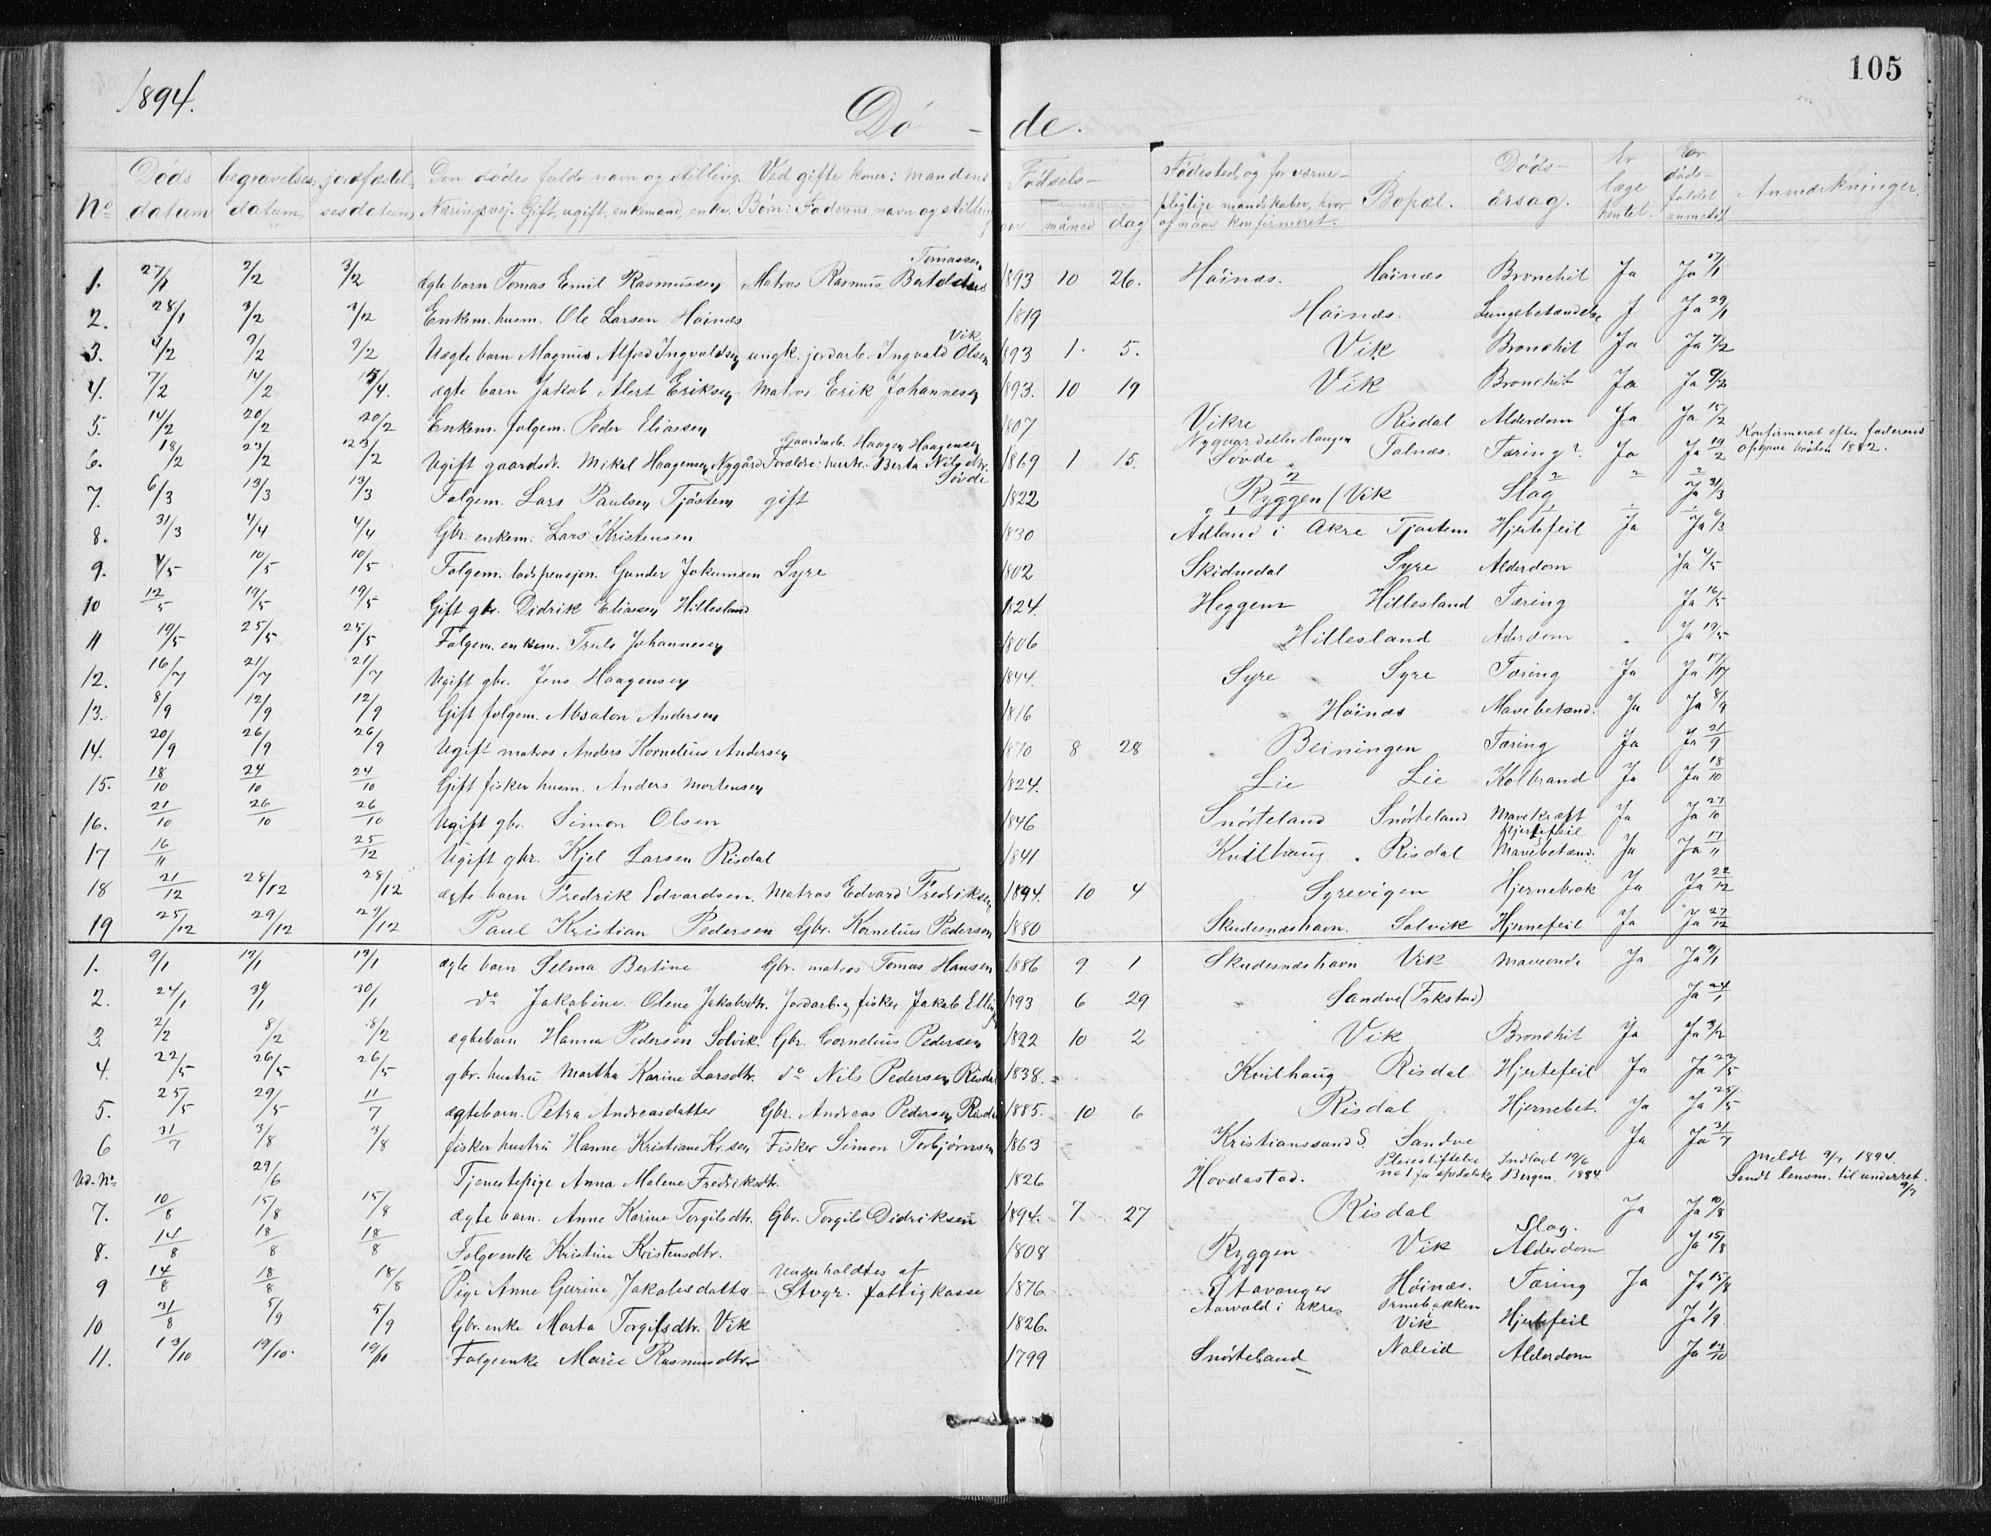 105
1894.
Dö - de.
No Døds datum begravelses datum jordfæstelsesdatum Den dødes fulde navn og stilling. Ved gifte koner: mandens Næringsvej. Gift, ugift, enkemand, enke. Børn: Faderens navn og stilling Fødsels- aar måned dag Fødested, og for værnepligtige mandskaber, hvor og naar konfirmeret. Bopæl. Døds- årsag. Er læge hentet. Er dødsfaldet anmeldt Anmærkninger.
Tomassen
1. 27/1 2/2 3/2 ægte barn Tomas Emil Rasmussen Matros Rasmus 1893 10 26. Höinæs. Höinæs Bronchit Ja Ja 27/1
2. 28/1 3/2 3/2 Enkem. husm. Ole Larsen Höinæs 1819 Höinæs. Lungebetændelse J Ja 29/1
Vik
3. 4/2 9/2 9/2 Uægte barn Magnus Alfred Ingvaldsen ungk. jordarb. Ingvald Olsen 1893 1. 5. Vik Bronchit Ja Ja 7/2
4. 7/2 14/2 15/4. ægte barn Jakob Alert Eriksen Matros Erik Johannesen 1893. 10 19 Vik Bronchit Ja Ja 9/2
5. 14/2 20/2 20/2 Enkem. folgem. Peder Eliassen 1807 Vikre Risdal Alderdom Ja Ja 15/2
Gaardarb. Haagen Haagensen Nygaard eller Haugen Konfirmeret efter faderens
6. 18/2 23/2 23/2 Ugift gaardsdr. Mikal Haagensen Nygård Forældre: hustr. Berta Nilsdtr. 1869 1 15. Søvde Falnæs. Tæring? Ja Ja 19/2 Opgave høsten 1882.
Søvde
7. 6/3 13/3 13/3 Folgem. Lars Paulsen Tjöstem gift 1822 Ryggen Vik Slag Ja 31/3
8. 31/3 4/4 4/4 Gbr. enkem. Lars Kristensen 1830 Adland i Akre Tjöstem Hjertefeil Ja Ja 6/3
9. 4/5 10/5 10/5 Folgem. lodspensjon. Gunder Jokumsen Syre 1802 Skidnedal Syre Alderdom Ja 4/5
10 12/5 19/5 19/5 Gift gbr. Didrik Eliassen Hillesland 1824. Heggem Hillesland Tæring Ja 16/5
11 19/5 25/5 25/5 Folgem. enkem. Truls Johannesen 1806 Hillesland Aderdom Ja 19/5
12. 16/7 21/7 21/7 Ugift gbr. Jens Haagensen 1844. Syre Syre Tæring Ja Ja 17/7
13. 8/9 12/9 12/9 Gift folgem. Absalon Andersen 1816 Höinæs Mavebetænd. Ja Ja 8/9
14. 20/9 26/9 26/9 Ugift matros Anders Kornelius Andersen 1870 8 28 Beiningen Tæring Ja Ja 21/9
15. 18/10 24/10 24/10 Gift fisker husm. Anders Mortensen 1824. Lie Lie Kolbrand Ja Ja 18/10
16. 21/10 26/10 26/10 Ugift gbr. Simon Olsen 1846 Snörteland Snörteland Mavekræft Ja Ja 27/10
Hjertefeil
17 16/11 25/12 Ugift gbr. Kjel Larsen Risdal 1841 Kvilhaug Risdal Mavebetænd. Ja Ja 17/11
18 21/12 28/12 28/12 ægte barn Fredrik Edvardsen. Matros Edvard Fredriksen 1894. 10 4 Syrevigen Hjernebrok Ja Ja 22/12
19 25/12 29/12 29/12 Paul Kristian Pedersen Gbr. Kornelius Pedersen 1880 Skudesnæshavn. Solvik Hjernefeil Ja Ja 27/12
1. 9/1 13/1 13/1 ægte barn Selma Bertine Gbr. matros Tomas Hansen 1886 9 1 Skudesnæshavn Vik Maveonde Ja Ja 9/1
2. 24/1 30/1 30/1 do Jakobine Olene Jakobsdtr. Jordarb. og fisker Jakob 1893 6 29 Sandve Ja 24/1
3. 2/2 8/2 8/2 ægtebarn Hanna Pedersen Solvik. Gbr. Cornelius Pedersen 1892 10 2 Vik Bronchit Ja Ja 3/2
4. 22/5 26/5 26/5 gbr. hustru Martha Karine Larsdtr. do Nils Pedersen Risdal 1838. Kvilhaug Risdal Hjertefeil Ja Ja 23/5
5. 25/5 29/5 11/7 ægtebarn. Petra Andreasdatter Gbr. Andreas Pedersen Risdal 1885. 10 6 Risdal Hjernebet. Ja Ja 25/5
6 31/7 3/8 3/8 fisker hustru Hanne Kristiane Fisker Simon Torbjørnsen 1863 Kristianssand S. Sandve Ja Ja 31/7
Ud. No 29/6 Tjenestepige Anna Malene Fredriksdtr. 1826 Hovdastad. Pleiestiftelse no 1 for spedalske Bergen. Indlagt 19/6 1884 Meldt 9/7 1894. Sendt lensm. til underret. 9/7
7. 10/8 15/8 15/8 ægte barn. Anne Karine Torgilsdtr. Gbr. Torgils Didriksen 1894. 7 27 Risdal Ja Ja 10/8
8. 14/8 18/8 18/8 Folgeenke Kristine Kristensdtr. 1808 Ryggen Vik Slag. Alderdom Ja 15/8
Underholdtes af
9 14/8 18/8 18/8 Pige Anne Gurine Jakobsdatter - Stvgr. fattigkasse 1876 Stavanger Höinæs. Tæring Ja Ja 15/8
10 31/8 5/9 5/9 Gbr. enke Marta Torgilsdtr. Vik 1826. Aarvold i Akre Ormebakken Vik Hjertefeil Ja 1/9
11. 13/10 19/10. 19/10 Folgeenke Marie Rasmusdtr 1799 Snörteland Naleid Alderdom Ja 13/10